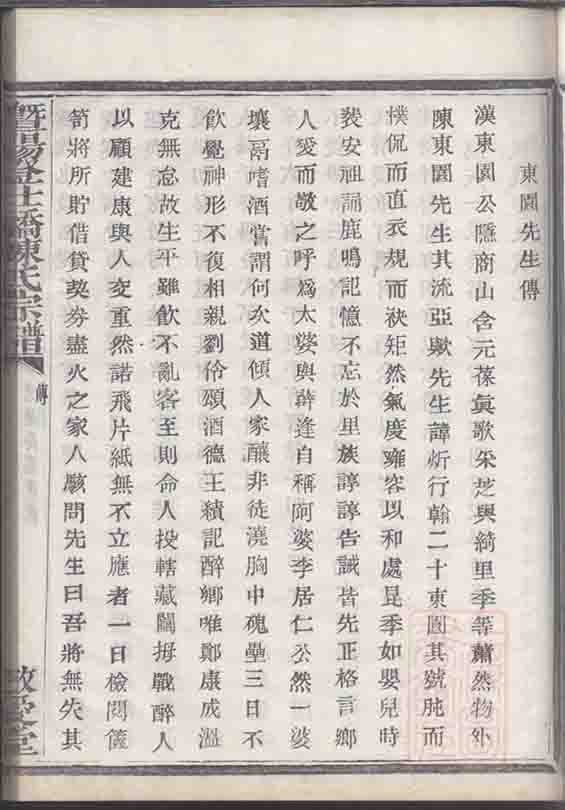 東園先生傳
漢東園公隱商山含元葆眞歌采芝與綺里季等蕭然物外
陳東園先生其流亞歟先生諱炘行翰二十東園其號肫而
樸侃而直衣規而袂矩然氣度雍容以和處昆季如嬰兒時
裝安祖誦鹿鳴記憶不忘於里族諄諄告誡皆先正格言鄉
人愛而敬之呼爲太婆與薛逢自稱阿婆李居仁公然一婆
壤鬲嗜酒嘗謂何次道傾人家釀非徒澆胸中磈壘三日不
飲覺神形不復相親劉伶頌酒德王績記醉鄉唯鄭康成溫
克無怠故生平雖飲不亂客至則命人投轄藏鬮拇戰醉人
以顧建康與人交重然諾飛片紙無不立應者一日檢閱篋
笥將所貯借貸契券盡火之家人駭問先生曰吾將無失其
暨陽金士橋陳氏宗譜
傳
敬愛堂